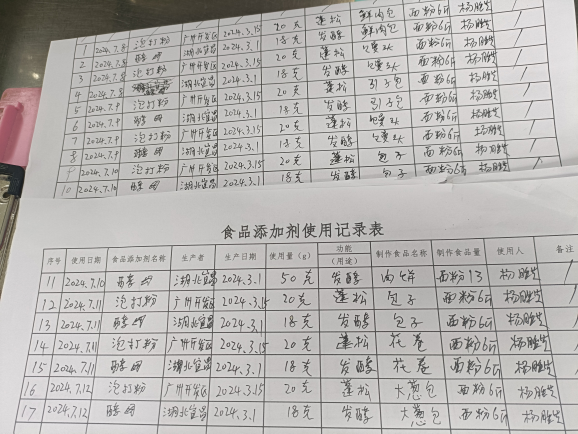 1 2024.7.8 泡打粉 广州开发区 2024.3.15 20克 蓬松 鲜肉包 面粉6斤 杨胜兰 /
2 2024.7.8 酵母 湖北宜昌 2024.3.1 18克 发酵 鲜肉包 面粉6斤 杨胜兰 /
3 2024.7.8 泡打粉 广州开发区 2024.3.15 20克 蓬松 馒头 面粉6斤 /
4 2024.7.8 湖北宜昌 2024.3.1 18克 发酵 馒头 面粉6斤 /
5 2024.7.9 泡打粉 广州开发区 2024.3.15 20克 蓬松 包 面粉6斤 /
6 2024.7.9 酵母 湖北宜昌 2024.3.1 18克 发酵 包 面粉6斤 /
7 2024.7.9 泡打粉 广州开发区 2024.3.15 20克 蓬松 馒头 面粉6斤 /
8 2024.7.9 酵母 湖北宜昌 2024.3.1 18克 发酵 馒头 面粉6斤 /
9 2024.7.10 泡打粉 广州开发区 2024.3.15 20克 蓬松 包子 面粉6斤 /
10 2024.7.10 酵母 湖北宜昌 2024.3.1 18克 发酵 包子 面粉6斤 /
食品添加剂使用记录表
序号 使用日期 食品添加剂名称 生产者 生产日期 使用量(g) 功能(用途) 制作食品名称 制作食品量 使用人 备注
11 2024.7.10 酵母 湖北宜昌 2024.3.1 50克 发酵 肉饼 面粉13 /
12 2024.7.11 泡打粉 广州开发区 2024.3.15 20克 蓬松 包子 面粉6斤 /
13 2024.7.11 酵母 湖北宜昌 2024.3.1 18克 发酵 包子 面粉6斤 /
14 2024.7.11 泡打粉 广州开发区 2024.3.15 20克 蓬松 花卷 面粉6斤 /
15 2024.7.11 酵母 湖北宜昌 2024.3.1 18克 发酵 花卷 面粉6斤 /
16 2024.7.12 泡打粉 广州开发区 2024.3.15 20克 蓬松 大葱包 面粉6斤 /
17 2024.7.12 酵母 湖北宜昌 2024.3.1 18克 发酵 大葱包 面粉6斤 /